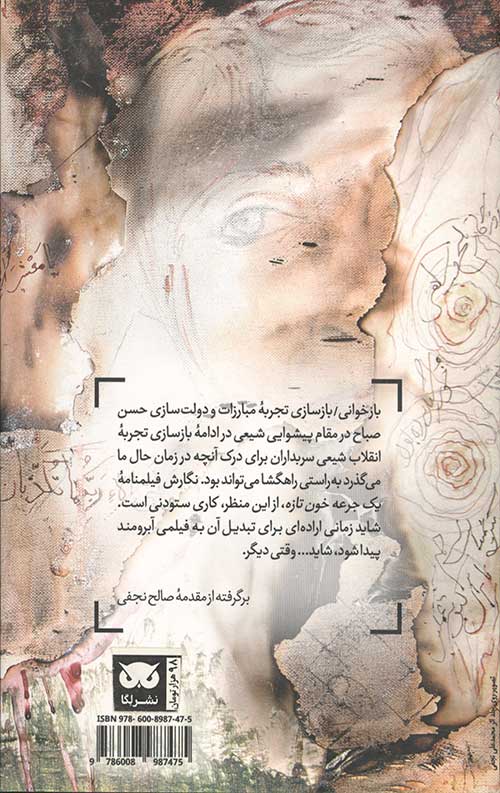 بازخوانی/بازسازی تجربهٔ مبارزات و دولت‌سازی حسن
صباح در مقام پیشوایی شیعی در ادامهٔ بازسازی تجربهٔ
انقلاب شیعی سربداران برای درک آنچه در زمان حال ما
می‌گذرد به‌راستی راهگشا می‌تواند بود. نگارش فیلمنامهٔ
یک جرعه خون تازه، از این منظر، کاری ستودنی است.
شاید زمانی اراده‌ای برای تبدیل آن به فیلمی آبرومند
پیدا شود، شاید... وقتی دیگر.
برگرفته از مقدمهٔ صالح نجفی
نشر لگا
۹۸ هزار تومان
ISBN 978- 600-8987-47-5
9 786008 987475